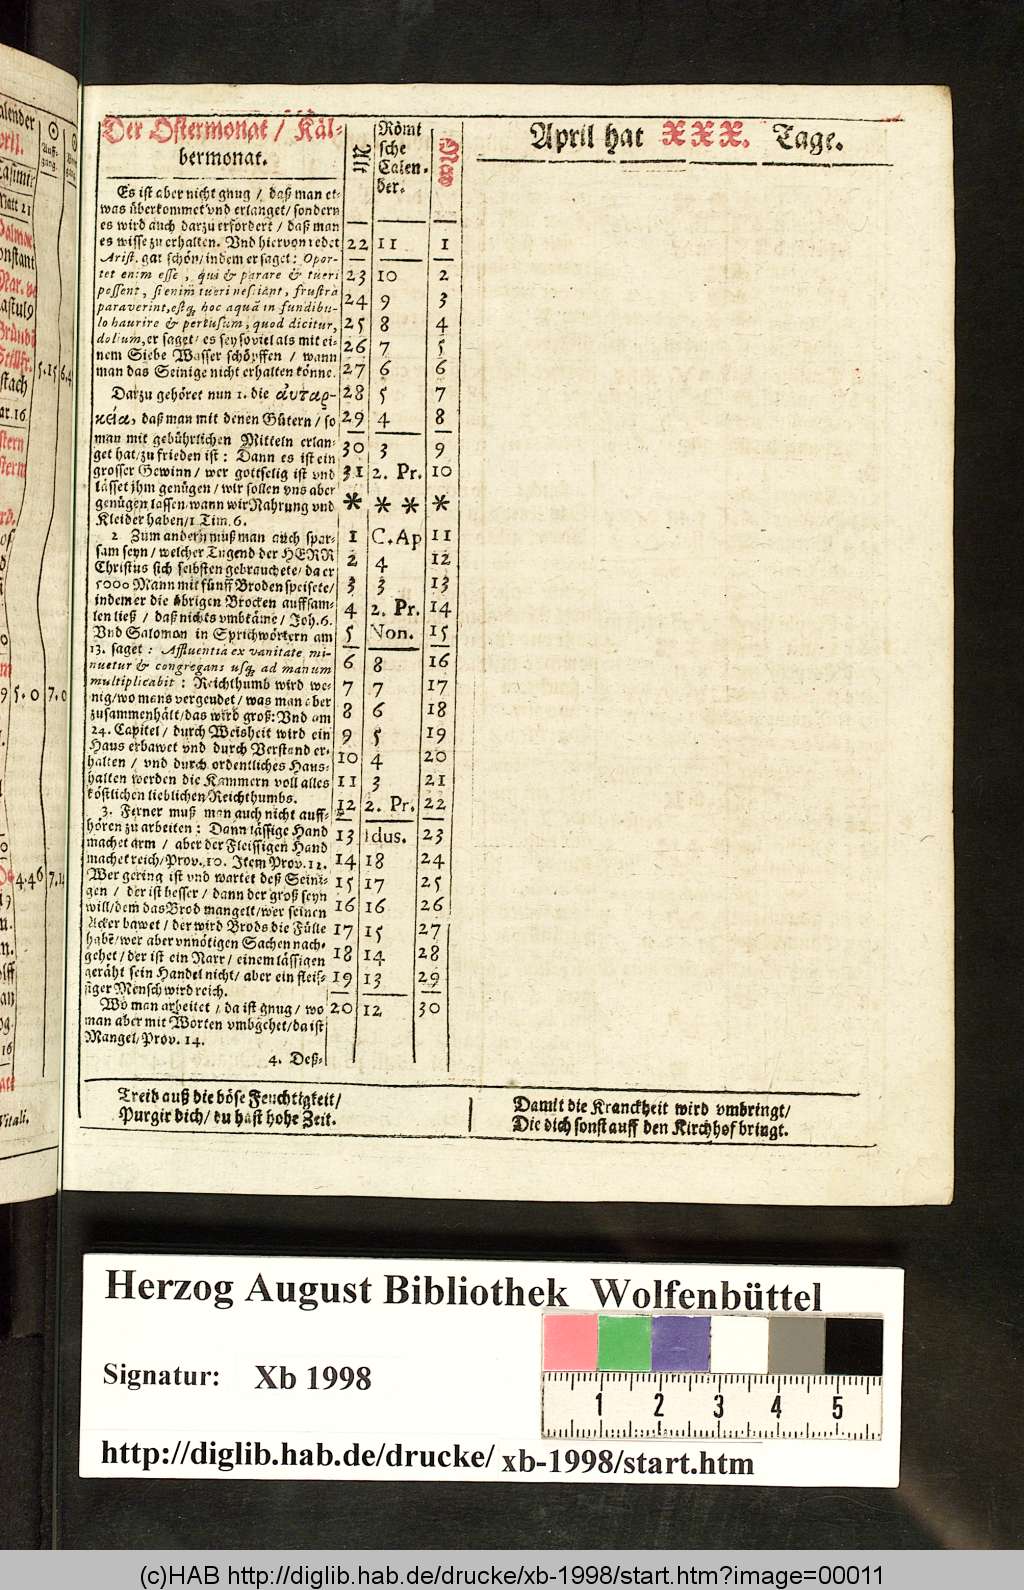 Der Ostermonat / Käl-
bermonat.
Es ist aber nicht gnug / daß man et-
was überkommet vnd erlanget / sondern
es wird auch darzu erfordert / daß man
es wisse zu erhalten. Vnd hiervon redet
Arist. gar schön / indem er saget: Opor-
tet enim esse, qui & parare & tueri
possent, si enim tueri nesciant, frustra
paraverint, estq; hoc aquã in fundibu-
lo haurire & pertusum, quod dicitur,
dolium, er saget / es sey soviel als mit ei-
nem Siebe Wasser schöpffen / wann
man das Seinige nicht erhalten könne.
Darzu gehöret nun 1. die αὐταρ-
κεία, daß man mit denen Gütern / so
man mit gebührlichen Mitteln erlan-
get hat / zu frieden ist: Dann es ist ein
grosser Gewinn / wer gottselig ist vnd
lässet jhm genügen / wir sollen vns aber
genügen lassen / wann wir Nahrung vnd
Kleider haben / 1 Tim. 6.
2 Zum andern muß man auch spar-
sam seyn / welcher Tugend der HERR
Christus sich selbsten gebrauchete / da er
5000 Mann mit fünff Broden speisete /
indem er die übrigen Brocken auffsam-
len ließ / daß nichts vmbkäme / Joh. 6.
Vnd Salomon in Sprichwörtern am
13. saget: Affluentia ex vanitate mi-
nuetur & congregans usq; ad manum
multiplicabit: Reichthumb wird we-
nig / wo mans vergeudet / was man aber
zusammenhält / das wird groß: Vnd am
24. Capitel / durch Weisheit wird ein
Haus erbawet vnd durch Verstand er-
halten / vnd durch ordentliches Haus-
halten werden die Kammern voll alles
köstlichen lieblichen Reichthumbs.
3. Ferner muß man auch nicht auff-
hören zu arbeiten: Dann lässige Hand
machet arm / aber der Fleissigen Hand
machet reich / Prov. 10. Item Prov. 12.
Wer gering ist vnd wartet deß Seini-
gen / der ist besser / dann der groß seyn
will / dem das Brod mangelt / wer seinen
Acker bawet / der wird Brods die Fülle
habẽ / wer aber vnnötigen Sachen nach-
gehet / der ist ein Narr / einem lässigen
geräht sein Handel nicht / aber ein fleis-
siger Mensch wird reich.
Wo man arbeitet / da ist gnug / wo
man aber mit Worten vmbgehet / da ist
Mangel / Prov. 14.
4. Deß-
Alt
Römi
sche
Calen-
der.
22 11 1
23 10 2
24 9 3
25 8 4
26 7 5
27 6 6
28 5 7
29 4 8
30 3 9
31 2. Pr. 10
* * * *
1 C. Ap 11
2 4 12
3 3 13
4 2. Pr. 14
5 Non. 15
6 8 16
7 7 17
8 6 18
9 5 19
10 4 20
11 3 21
12 2. Pr. 22
13 Idus. 23
14 18 24
15 17 25
16 16 26
17 15 27
18 14 28
19 13 29
20 12 30
April hat XXX. Tage.
Treib auß die böse Feuchtigkeit /
Purgir dich / du hast hohe Zeit.
Damit die Kranckheit wird vmbringt /
Die dich sonst auff den Kirchhof bringt.
Herzog August Bibliothek Wolfenbüttel
Signatur: Xb 1998
1 2 3 4 5
http://diglib.hab.de/drucke/ xb-1998/start.htm
(c)HAB http://diglib.hab.de/drucke/xb-1998/start.htm?image=00011